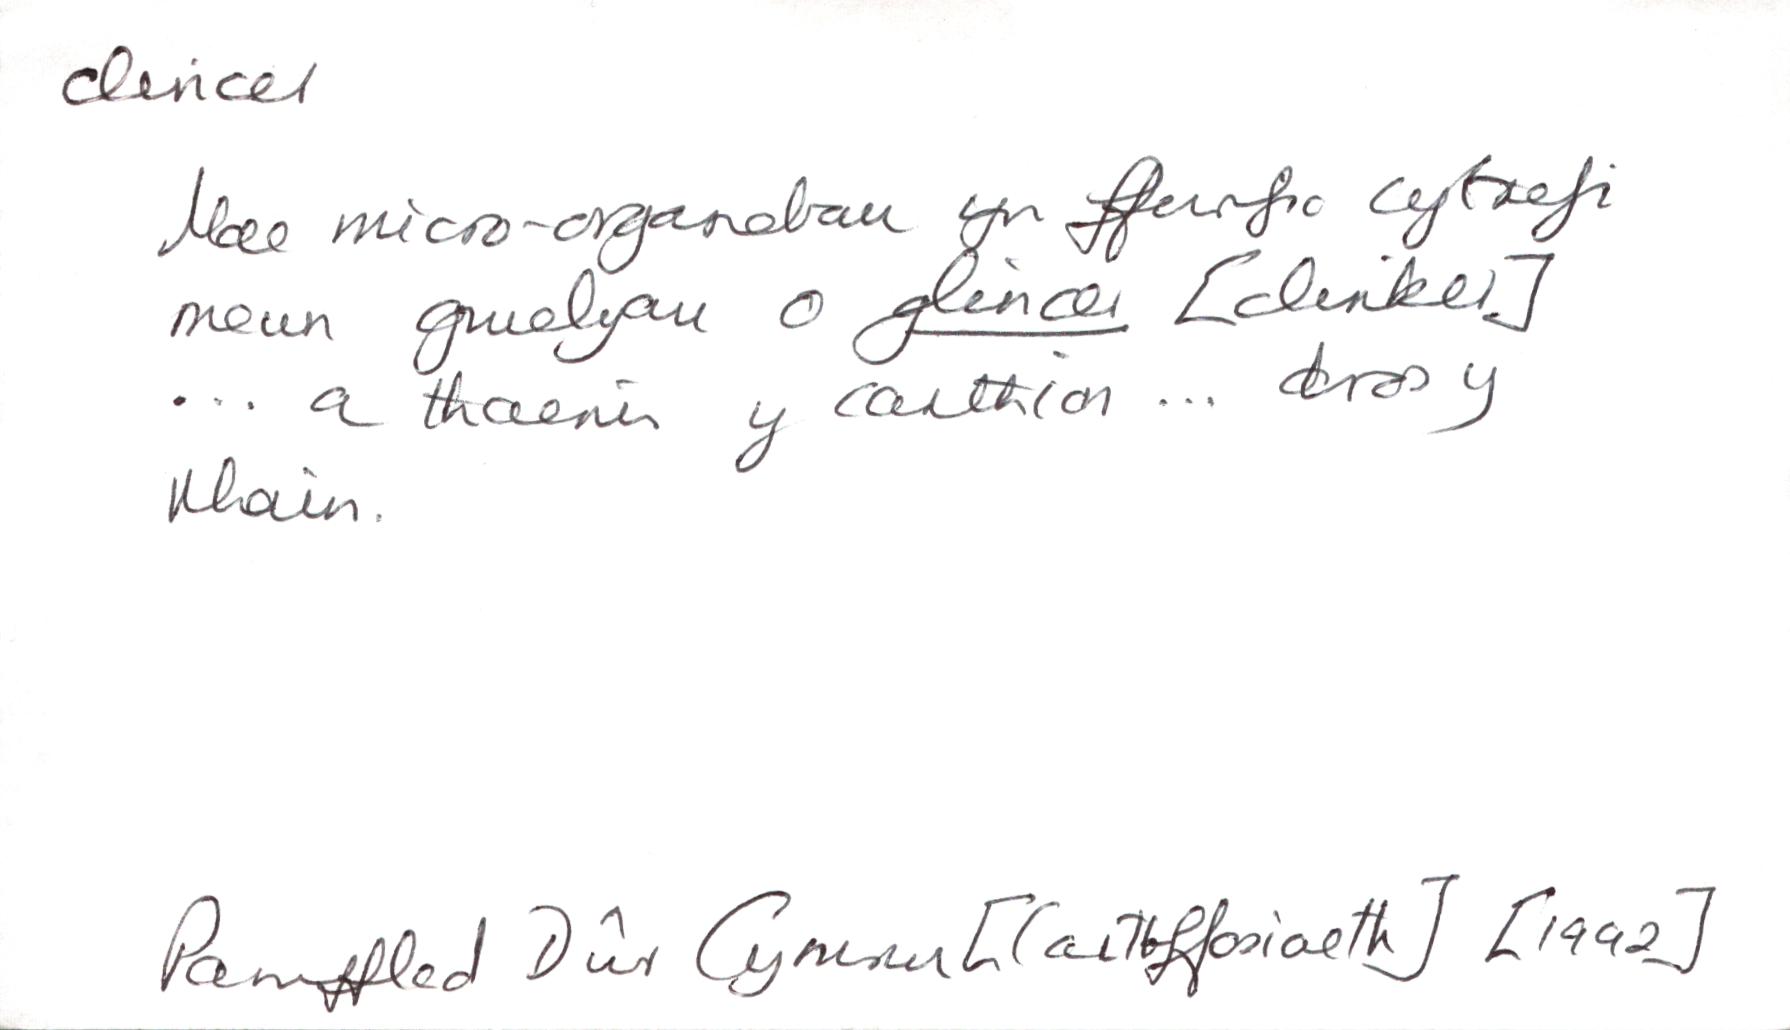 clincer
Mae micro-organebau yn ffurfio cytrefi
mewn gwelyau o glincer [clinker]
... a thaenir y carthion ... dros y
rhain.
Pamffled Dŵr Cymru [Carthffosiaeth] [1992]